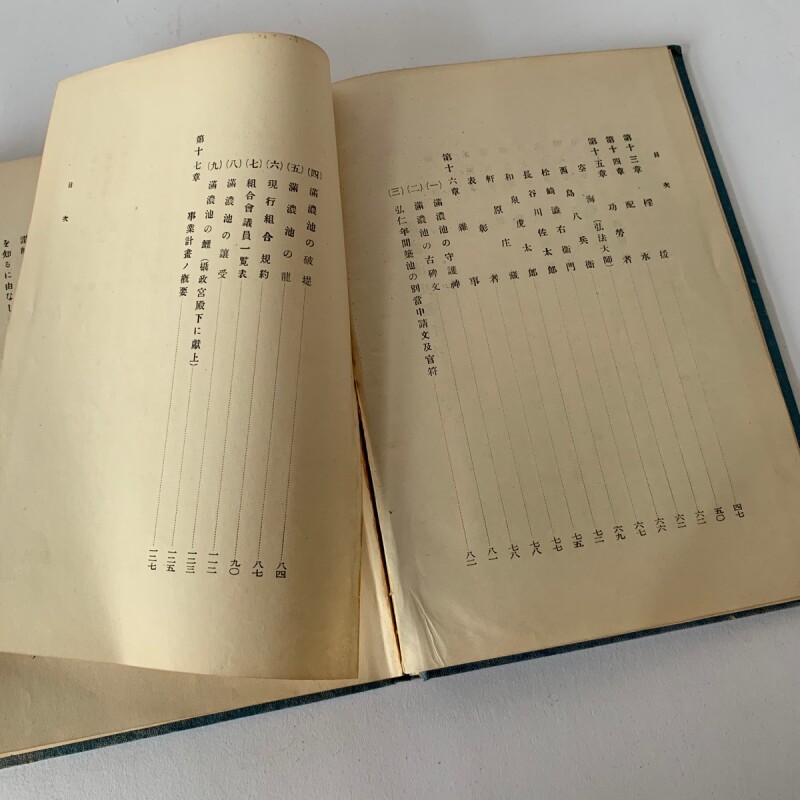 目次
第十三章 四七
第十四章 配水 五〇
第十五章 功勞者 六二
空海(弘法大師) 六二
西島八兵衞 六六
松崎澁右衞門 六七
長谷川佐太郎 六九
和泉虎太郎 七二
軒原庄藏 七五
表彰者 七七
第十六章 雜事 七八
(一)滿濃池の守護神 七八
(二)滿濃池の古碑文 八一
(三)弘仁年間築池の別當申請文及官符 八二
(四)滿濃池の破堤 八四
(五)滿濃池の龍 八七
(六)現行組合規約 九〇
(七)組合會議員一覧表 一一二
(八)滿濃池の讓受 一二三
(九)滿濃池の鯉(攝政宮殿下に獻上) 一二五
第十七章 事業計畫ノ概要 一二七
目次
を知るに由なし